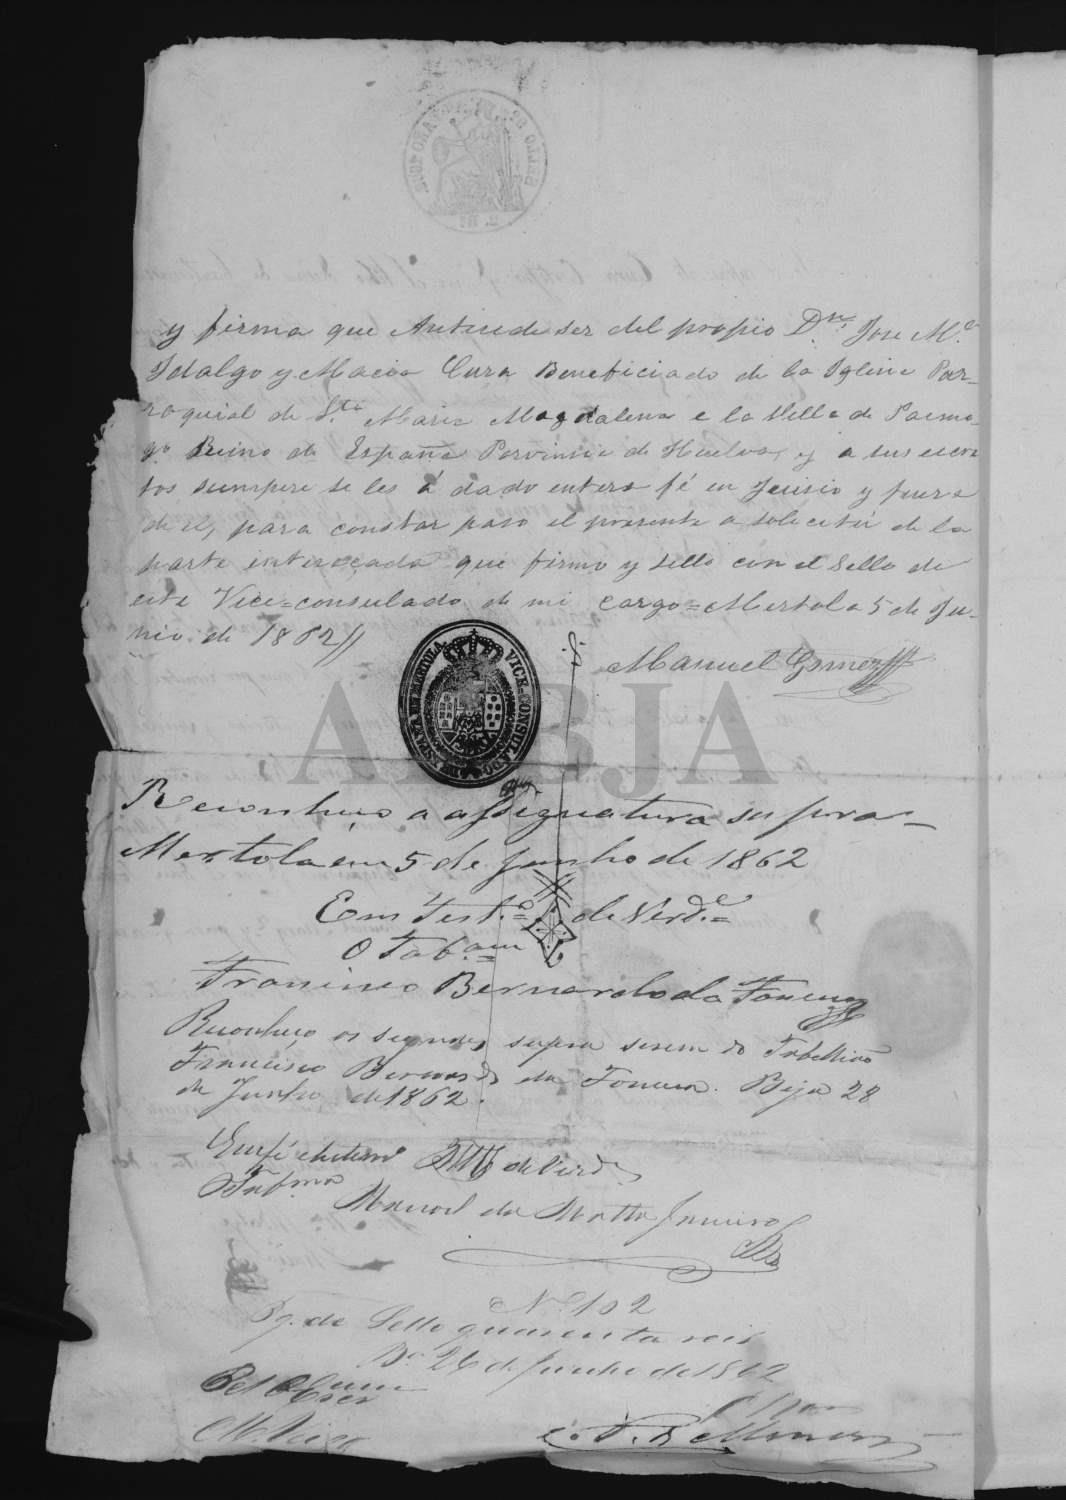 y firma que Antesede ser del propio D.n Jose M.a
Hidalgo y Macia Cura Beneficiado de la Iglesia Par-
roquial de S.ta Maria Magdalena e la Villa de Paimo-
go Reino de España Porvinsia de Huelva, y a sus escri
tos siempere se les á dado entera fé en Juisio y fuera
de el, para constar paso el presente a solicitú de la
parte interesada que firmo y sello con el Sello de
este Vice=consulado de mi cargo = Mertola 5 de Ju-
nio de 1862//
Manuel Gomez
VICE-CONSULADO DE ESPAÑA EN MERTOLA
ABJA
Reconheço a assignatura supra -
Mertola em 5 de Junho de 1862
Em Test.o de Verd.e
O Tab.am
Francisco Bernardo da Fonseca
Reconheço os signaes supra serem do Tabellião
Francisco Bernardo da Fonseca. Beja 28
de Junho de 1862.
Em fé de Verd.e
O Tab.am
Manoel da Matta Janeiro
N.o 102
Pg. de Sello quarenta reis
B.a 26 de Junho de 1862